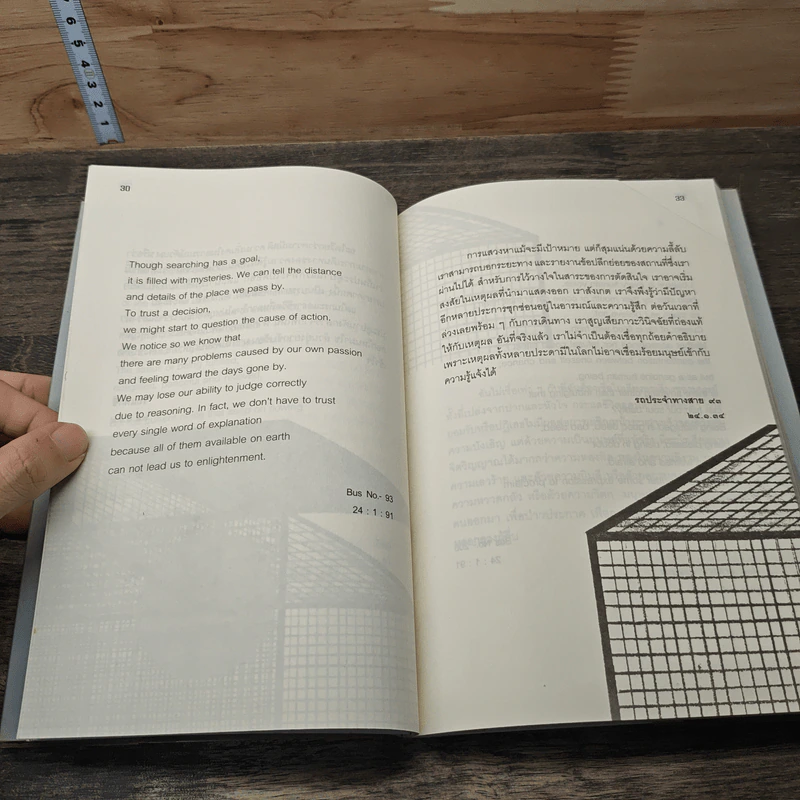 6 5 4 3 2 1
30
Though searching has a goal,
it is filled with mysteries. We can tell the distance
and details of the place we pass by.
To trust a decision,
we might start to question the cause of action.
We notice so we know that
there are many problems caused by our own passion
and feeling toward the days gone by.
We may lose our ability to judge correctly
due to reasoning. In fact, we don't have to trust
every single word of explanation
because all of them available on earth
can not lead us to enlightenment.
Bus No.- 93
24 : 1 : 91
33
การแสวงหาแม้จะมีเป้าหมาย แต่ก็สุมแน่นด้วยความลี้ลับ
เราสามารถบอกระยะทาง และรายงานข้อปลีกย่อยของสถานที่ซึ่งเรา
ผ่านไปได้ สำหรับการไว้วางใจในสาระของการตัดสินใจ เราอาจเริ่ม
สงสัยในเหตุผลที่นำมาแสดงออก เราสังเกต เราจึงพึงรู้ว่ามีปัญหา
อีกหลายประการซุกซ่อนอยู่ในอารมณ์และความรู้สึก ต่อวันเวลาที่
ล่วงเลยพร้อม ๆ กับการเดินทาง เราสูญเสียภาวะวินิจฉัยที่ถ่องแท้
ให้กับเหตุผล อันที่จริงแล้ว เราไม่จำเป็นต้องเชื่อทุกถ้อยคำอธิบาย
เพราะเหตุผลทั้งหลายประดามีในโลกไม่อาจเชื่อมร้อยมนุษย์เข้ากับ
ความรู้แจ้งได้
รถประจำทางสาย ๙๓
๒๔.๑.๓๔